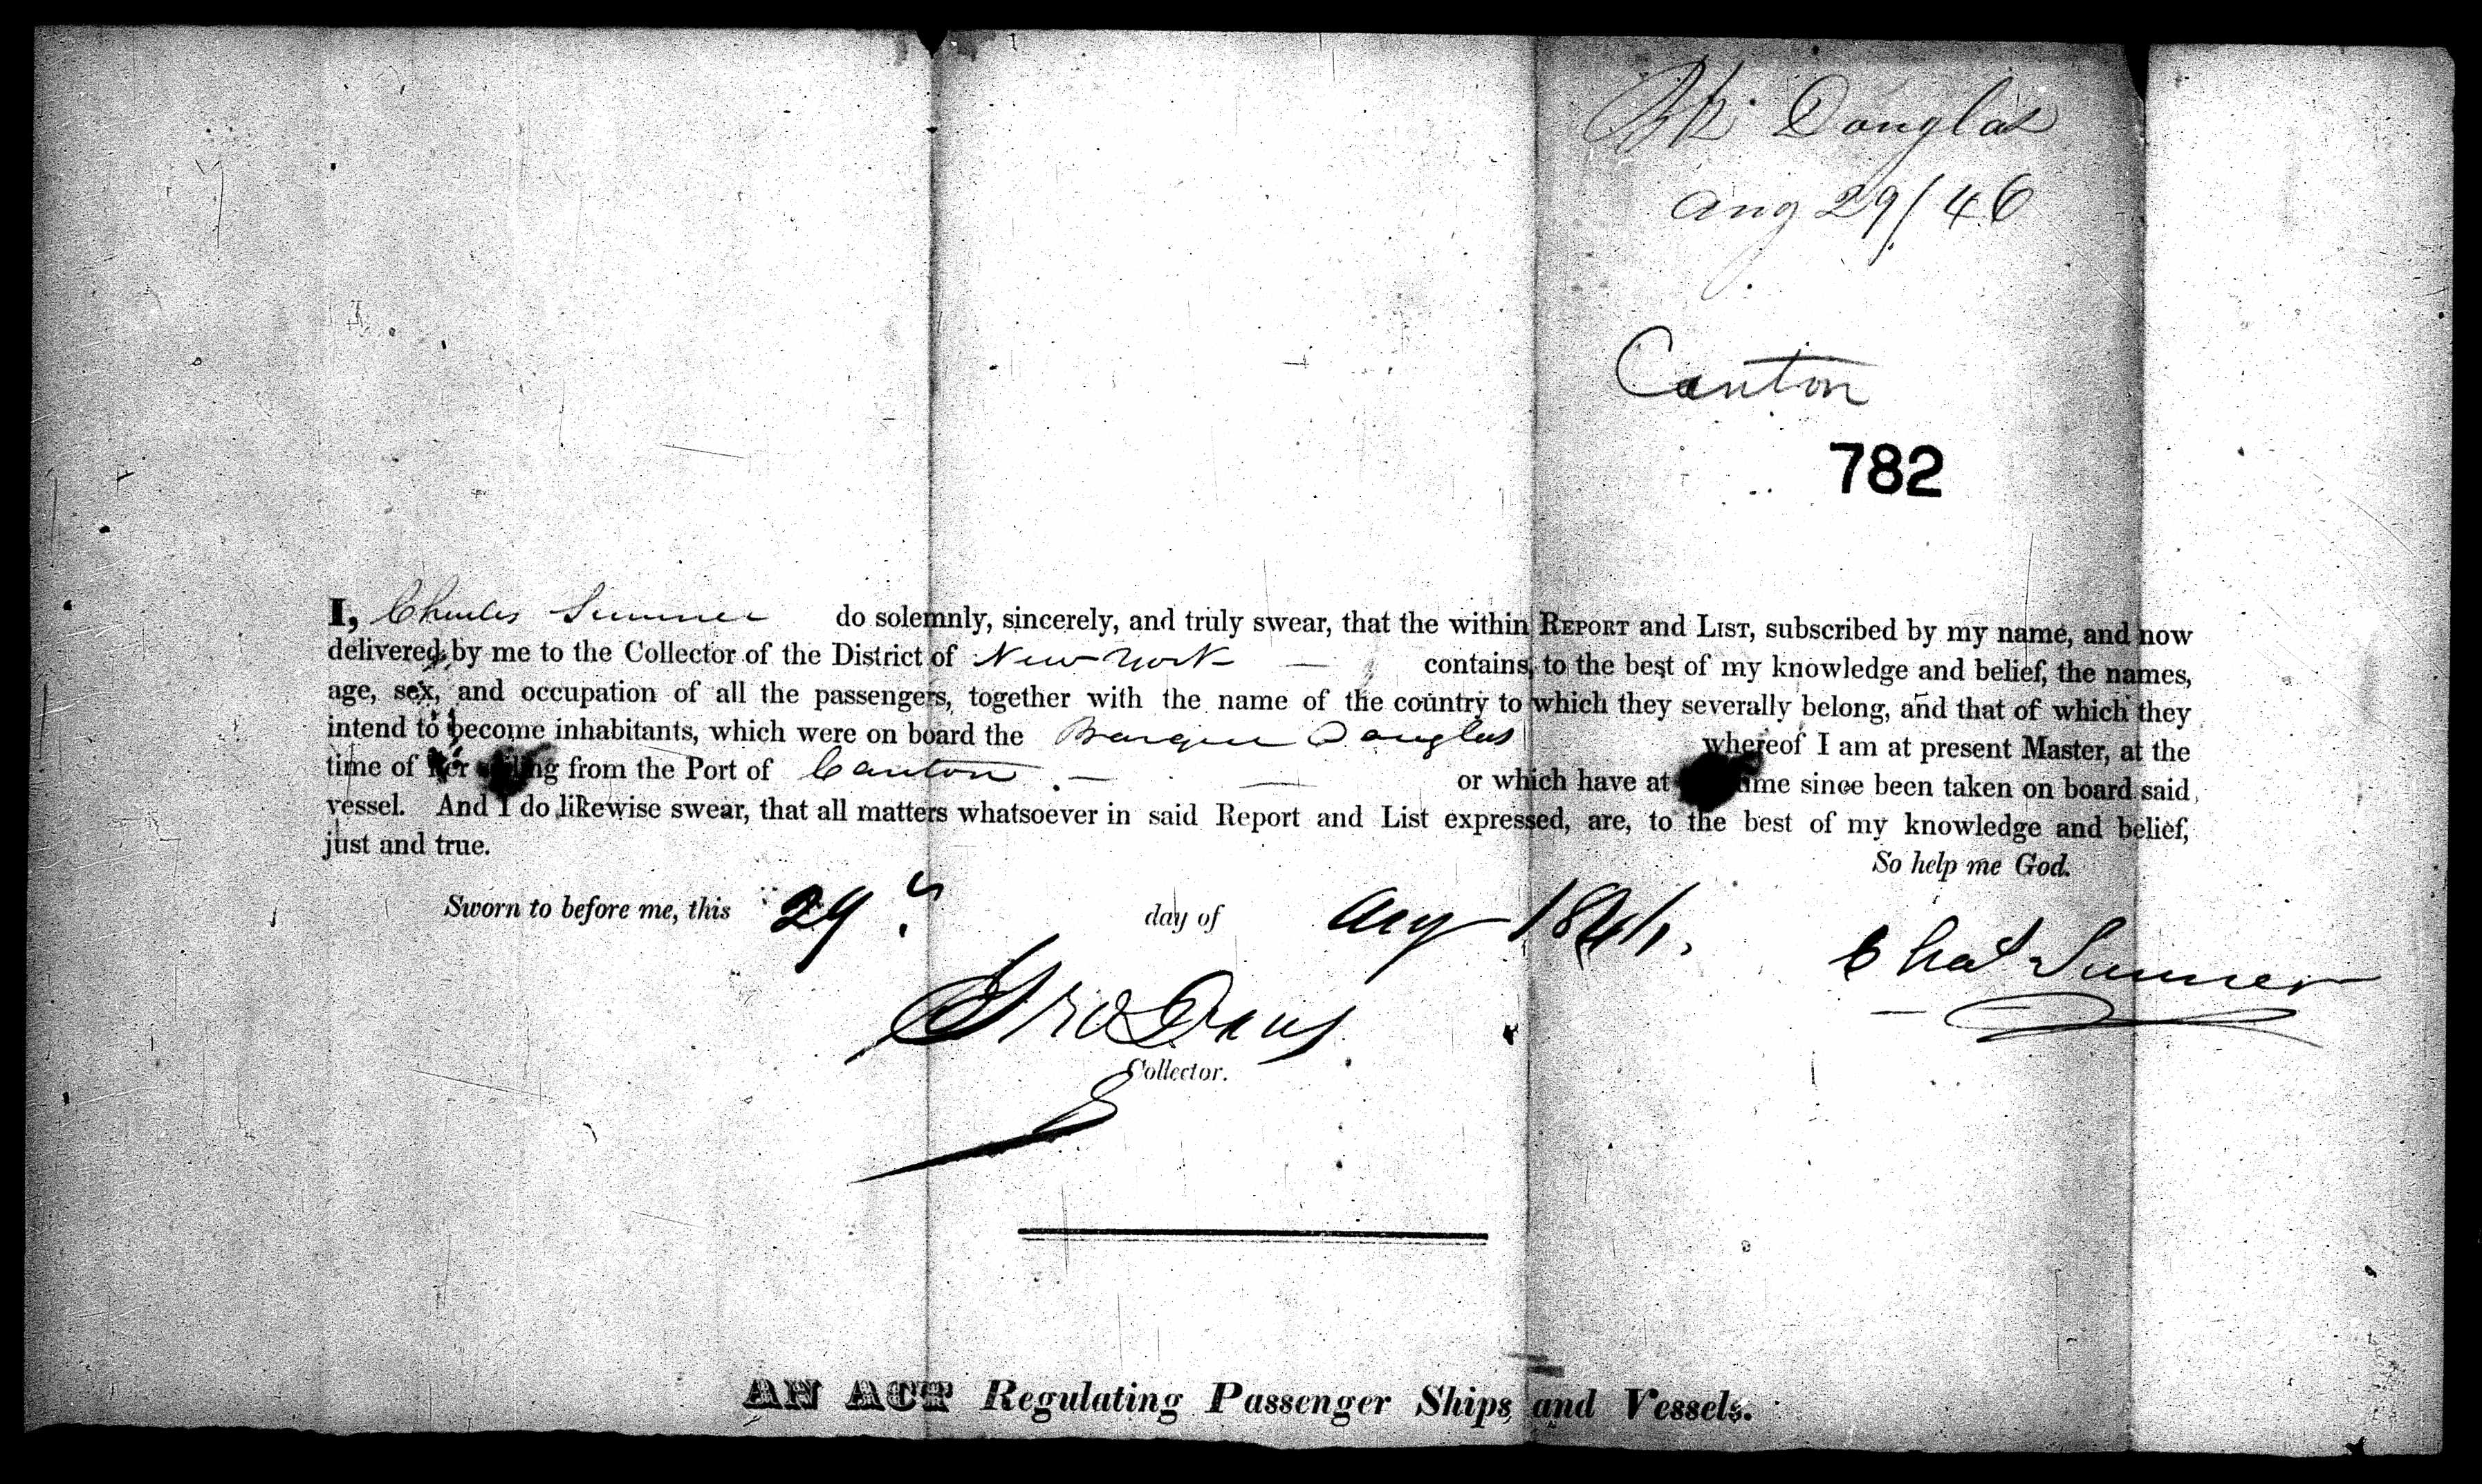 Bk Douglas
Aug 29/46
Canton
782
I, Charles Sumner do solemnly, sincerely, and truly swear, that the within REPORT and LIST, subscribed by my name, and now
delivered by me to the Collector of the District of New York — contains, to the best of my knowledge and belief, the names,
age, sex, and occupation of all the passengers, together with the name of the country to which they severally belong, and that of which they
intend to become inhabitants, which were on board the Barque Douglas whereof I am at present Master, at the
time of her sailing from the Port of Canton — — or which have at time since been taken on board said
vessel. And I do likewise swear, that all matters whatsoever in said Report and List expressed, are, to the best of my knowledge and belief,
just and true.
So help me God.
Sworn to before me, this 29 day of Aug 1846.
Chas Sumner
Collector.
AN ACT Regulating Passenger Ships and Vessels.